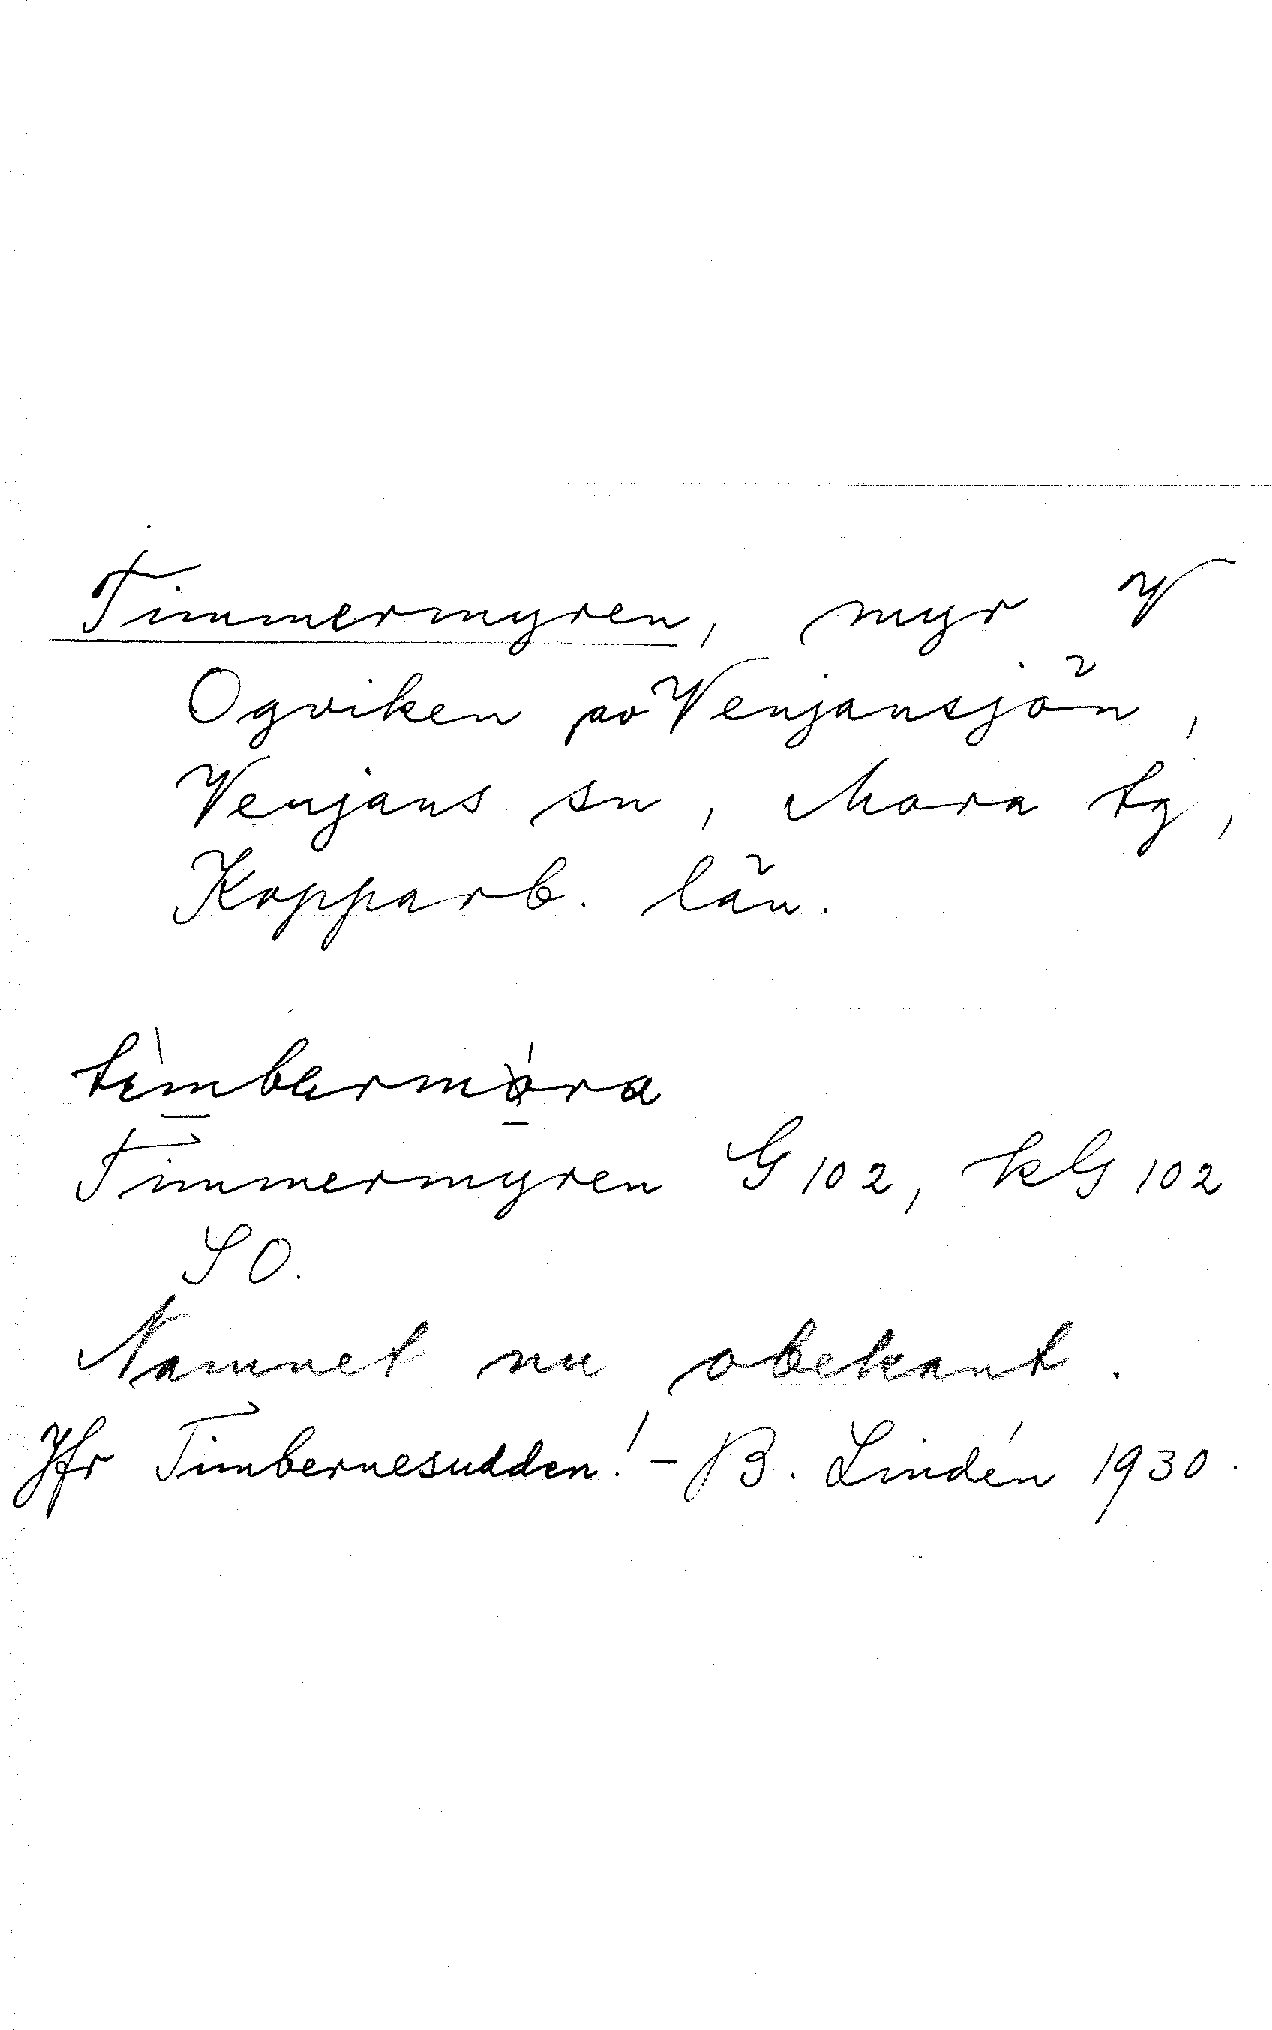 Timmermyren, myr V
Ogviken av Venjansjön,
Venjans sn, Mora tg,
Kopparb. län.
Timmermyren G 102, kG 102
SO.
Namnet nu obekant.
Jfr Timbernesudden! - B. Lindén 1930.